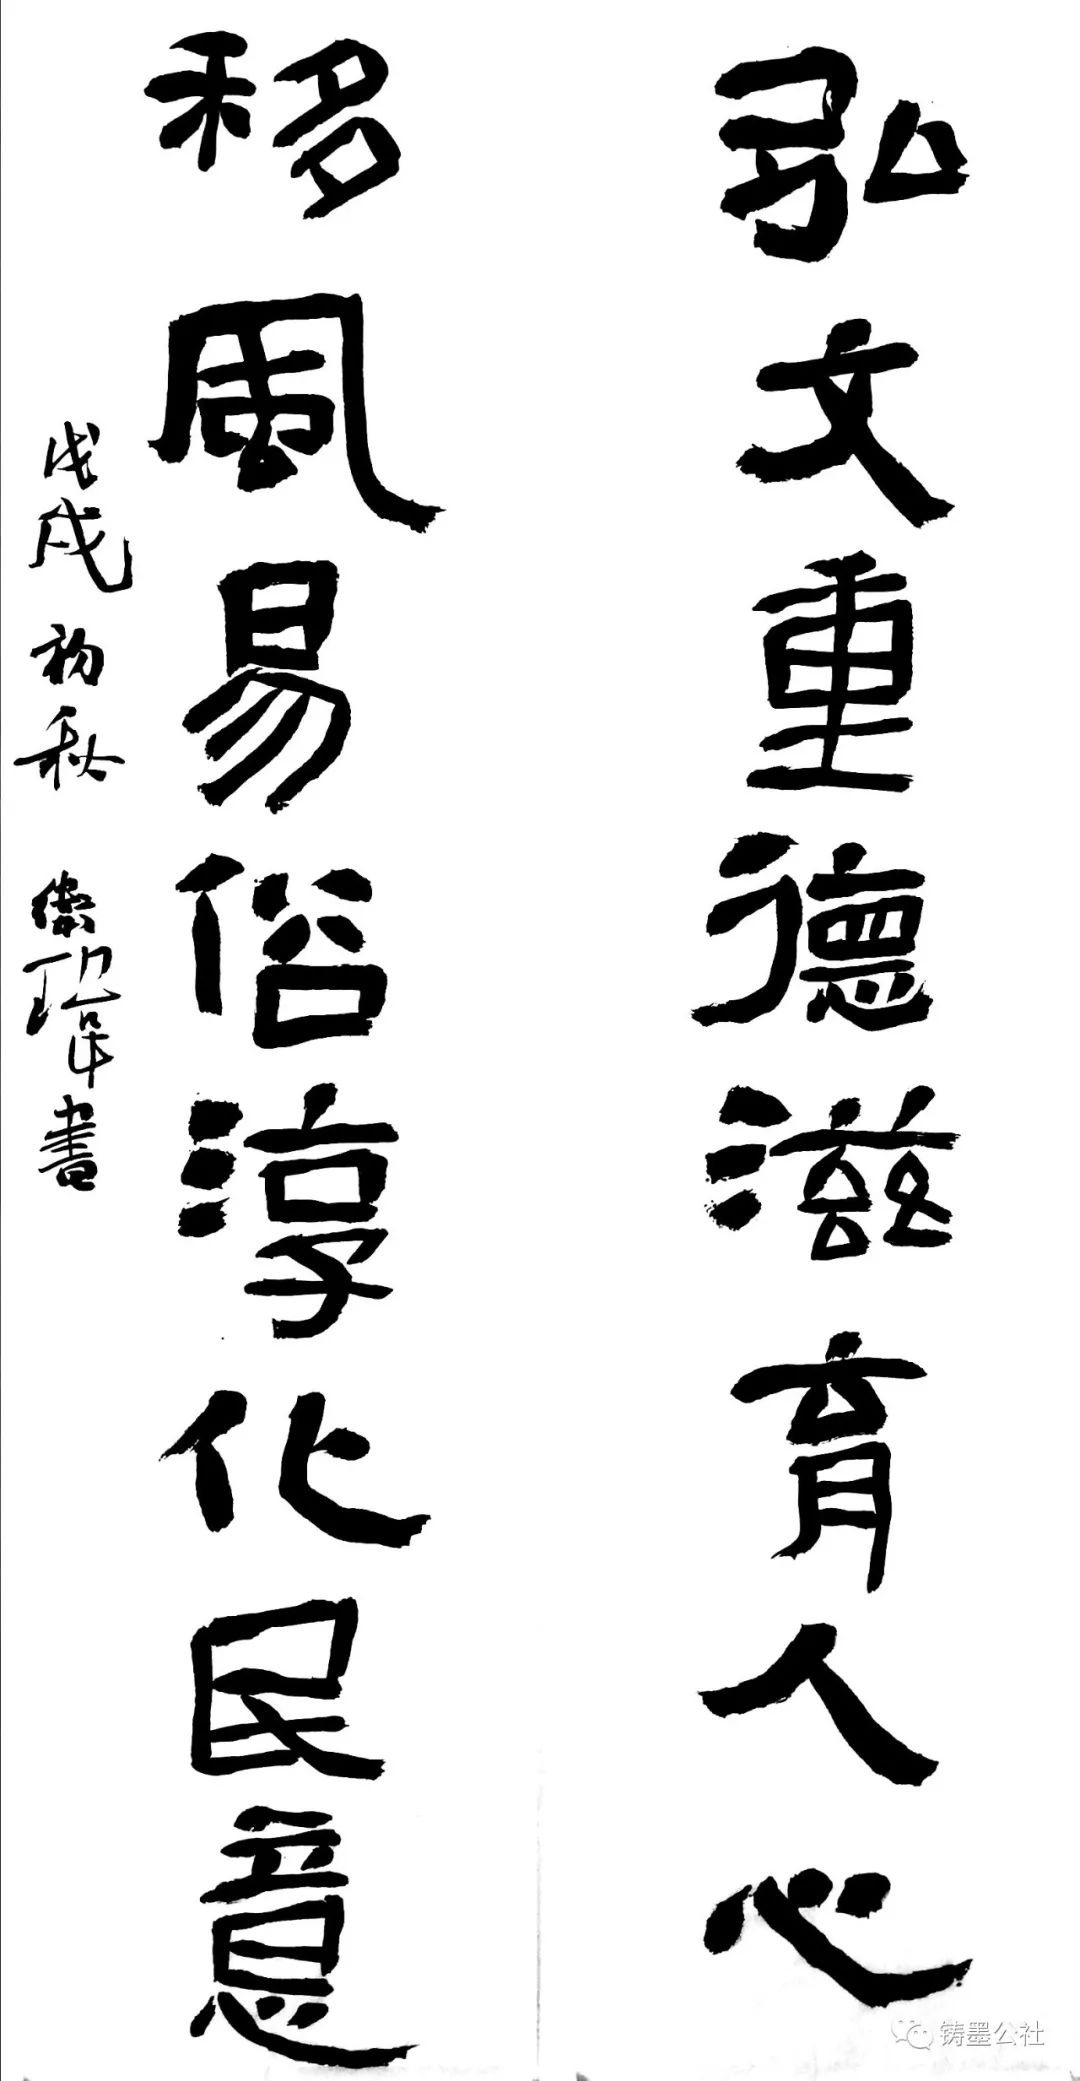 弘文重德滋育人心
移風易俗淳化民意
戊戌初秋
書
铸墨公社